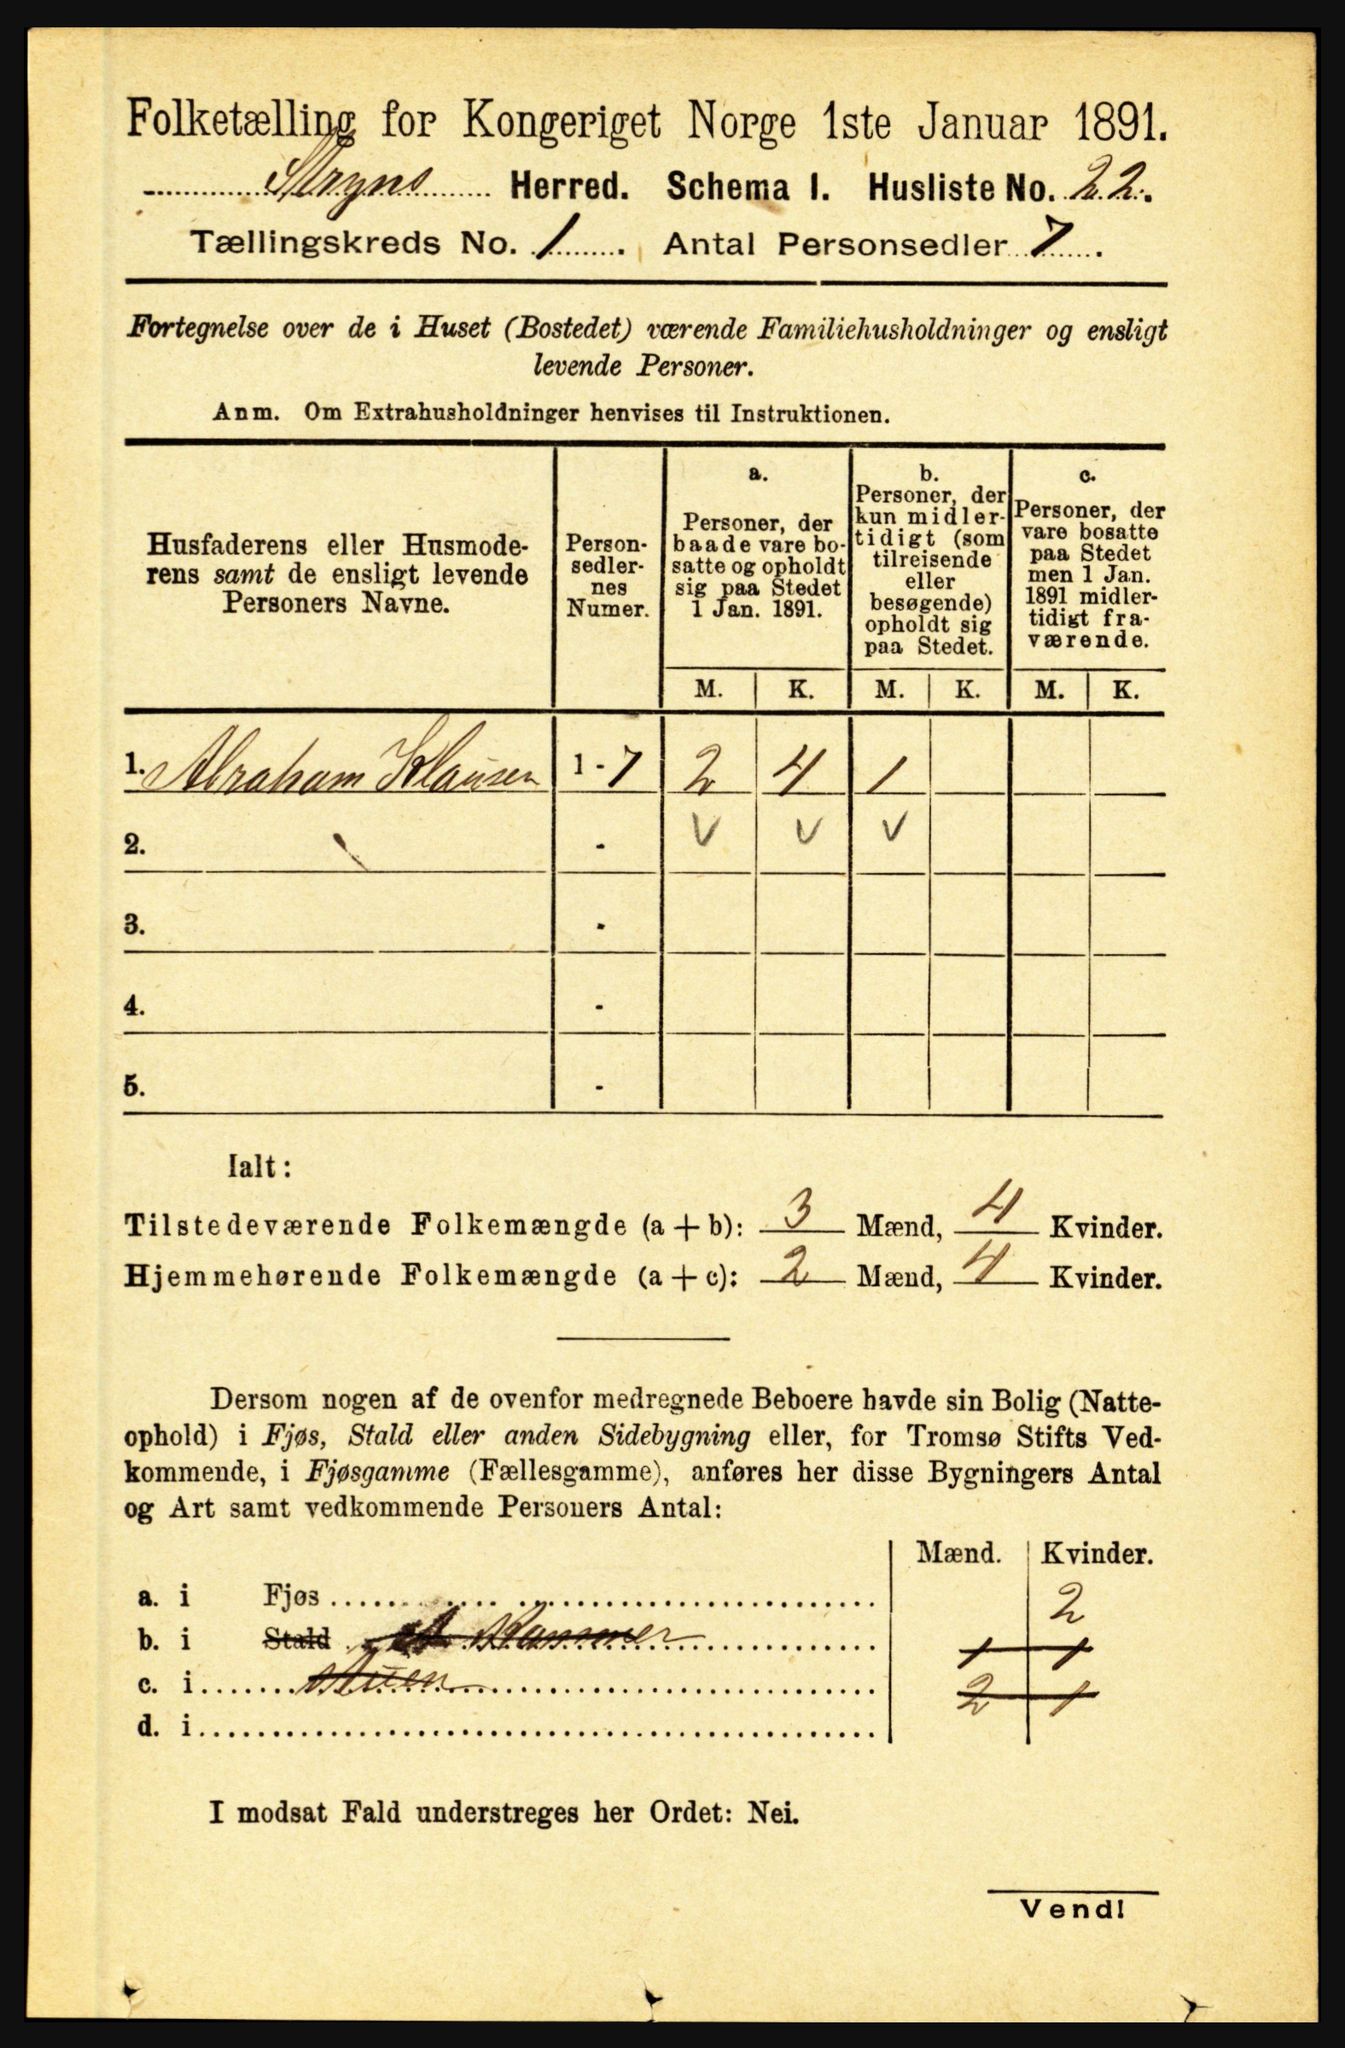 Folketælling for Kongeriget Norge 1ste Januar 1891.
Stryns Herred. Schema I. Husliste No. 22.
Tællingskreds No. 1. Antal Personsedler 7.
Fortegnelse over de i Huset (Bostedet) værende Familiehusholdninger og ensligt
levende Personer.
Anm. Om Extrahusholdninger henvises til Instruktionen.
Husfaderens eller Husmode-
rens samt de ensligt levende
Personers Navne.
Person-
sedler-
nes
Numer.
a.
Personer, der
baade vare bo-
satte og opholdt
sig paa Stedet
1 Jan. 1891.
b.
Personer, der
kun midler-
tidigt (som
tilreisende
eller
besøgende)
opholdt sig
paa Stedet.
c.
Personer, der
vare bosatte
paa Stedet
men 1 Jan.
1891 midler-
tidigt fra-
værende.
M. K. M. K. M. K.
1. Abraham Klausen 1 - 7 2 4 1
2. - v v v
3. -
4. -
5. -
Ialt:
Tilstedeværende Folkemængde (a + b): 3 Mænd, 4 Kvinder.
Hjemmehørende Folkemængde (a + c): 2 Mænd, 4 Kvinder.
Dersom nogen af de ovenfor medregnede Beboere havde sin Bolig (Natte-
ophold) i Fjøs, Stald eller anden Sidebygning eller, for Tromsø Stifts Ved-
kommende, i Fjøsgamme (Fællesgamme), anføres her disse Bygningers Antal
og Art samt vedkommende Personers Antal:
Mænd. Kvinder.
a. i Fjøs 2
b. i Stald et Kammer 1 1
c. i stuen 2 1
d. i
I modsat Fald understreges her Ordet: Nei.
Vend!